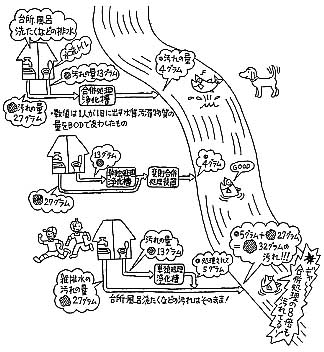 台所、風呂
洗たくなどの排水
水洗トイレ
汚れの量13グラム
合併処理
浄化槽
汚れの量
4グラム
汚れの量
27グラム
・数値は1人が1日に出す水質汚濁物質の
量をBODで表わしたもの
13グラム
単独処理
浄化槽
変則合併
処理装置
4グラム
GOOD
27グラム
汚れの量
13グラム
処理されて
5グラム
単独処理
浄化槽
雑排水の
汚れの量
27グラム
台所、風呂、洗たくなどの汚れはそのまま!
5グラム+27グラム
=32グラムの
汚れ!!!
合併処理の8倍も
汚れてる